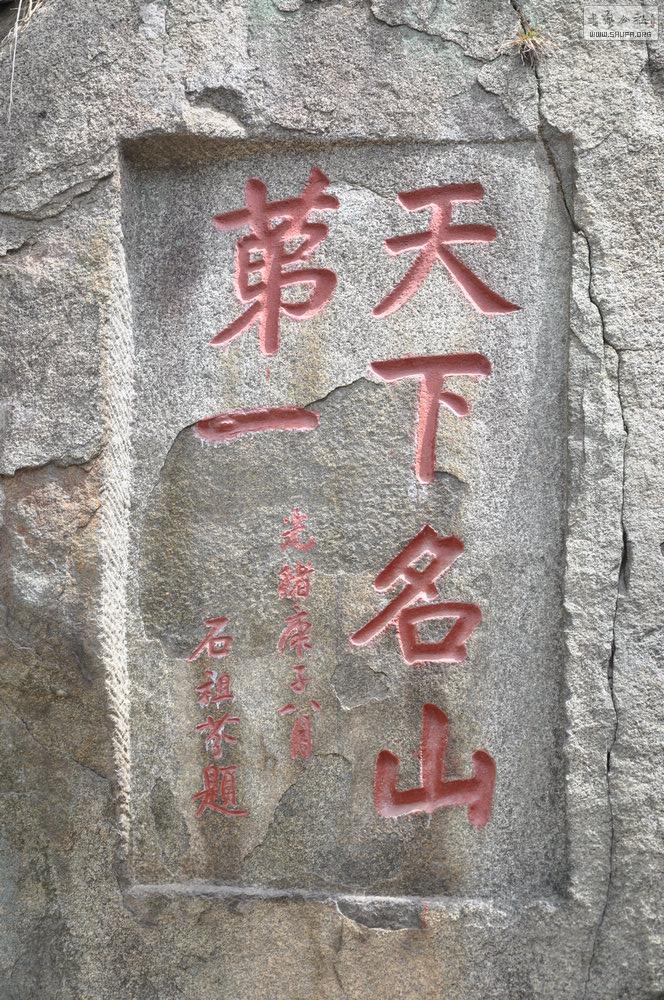 天下名山
第一
光緒庚子八月
石祖芬題
WWW.SHUPA.ORG